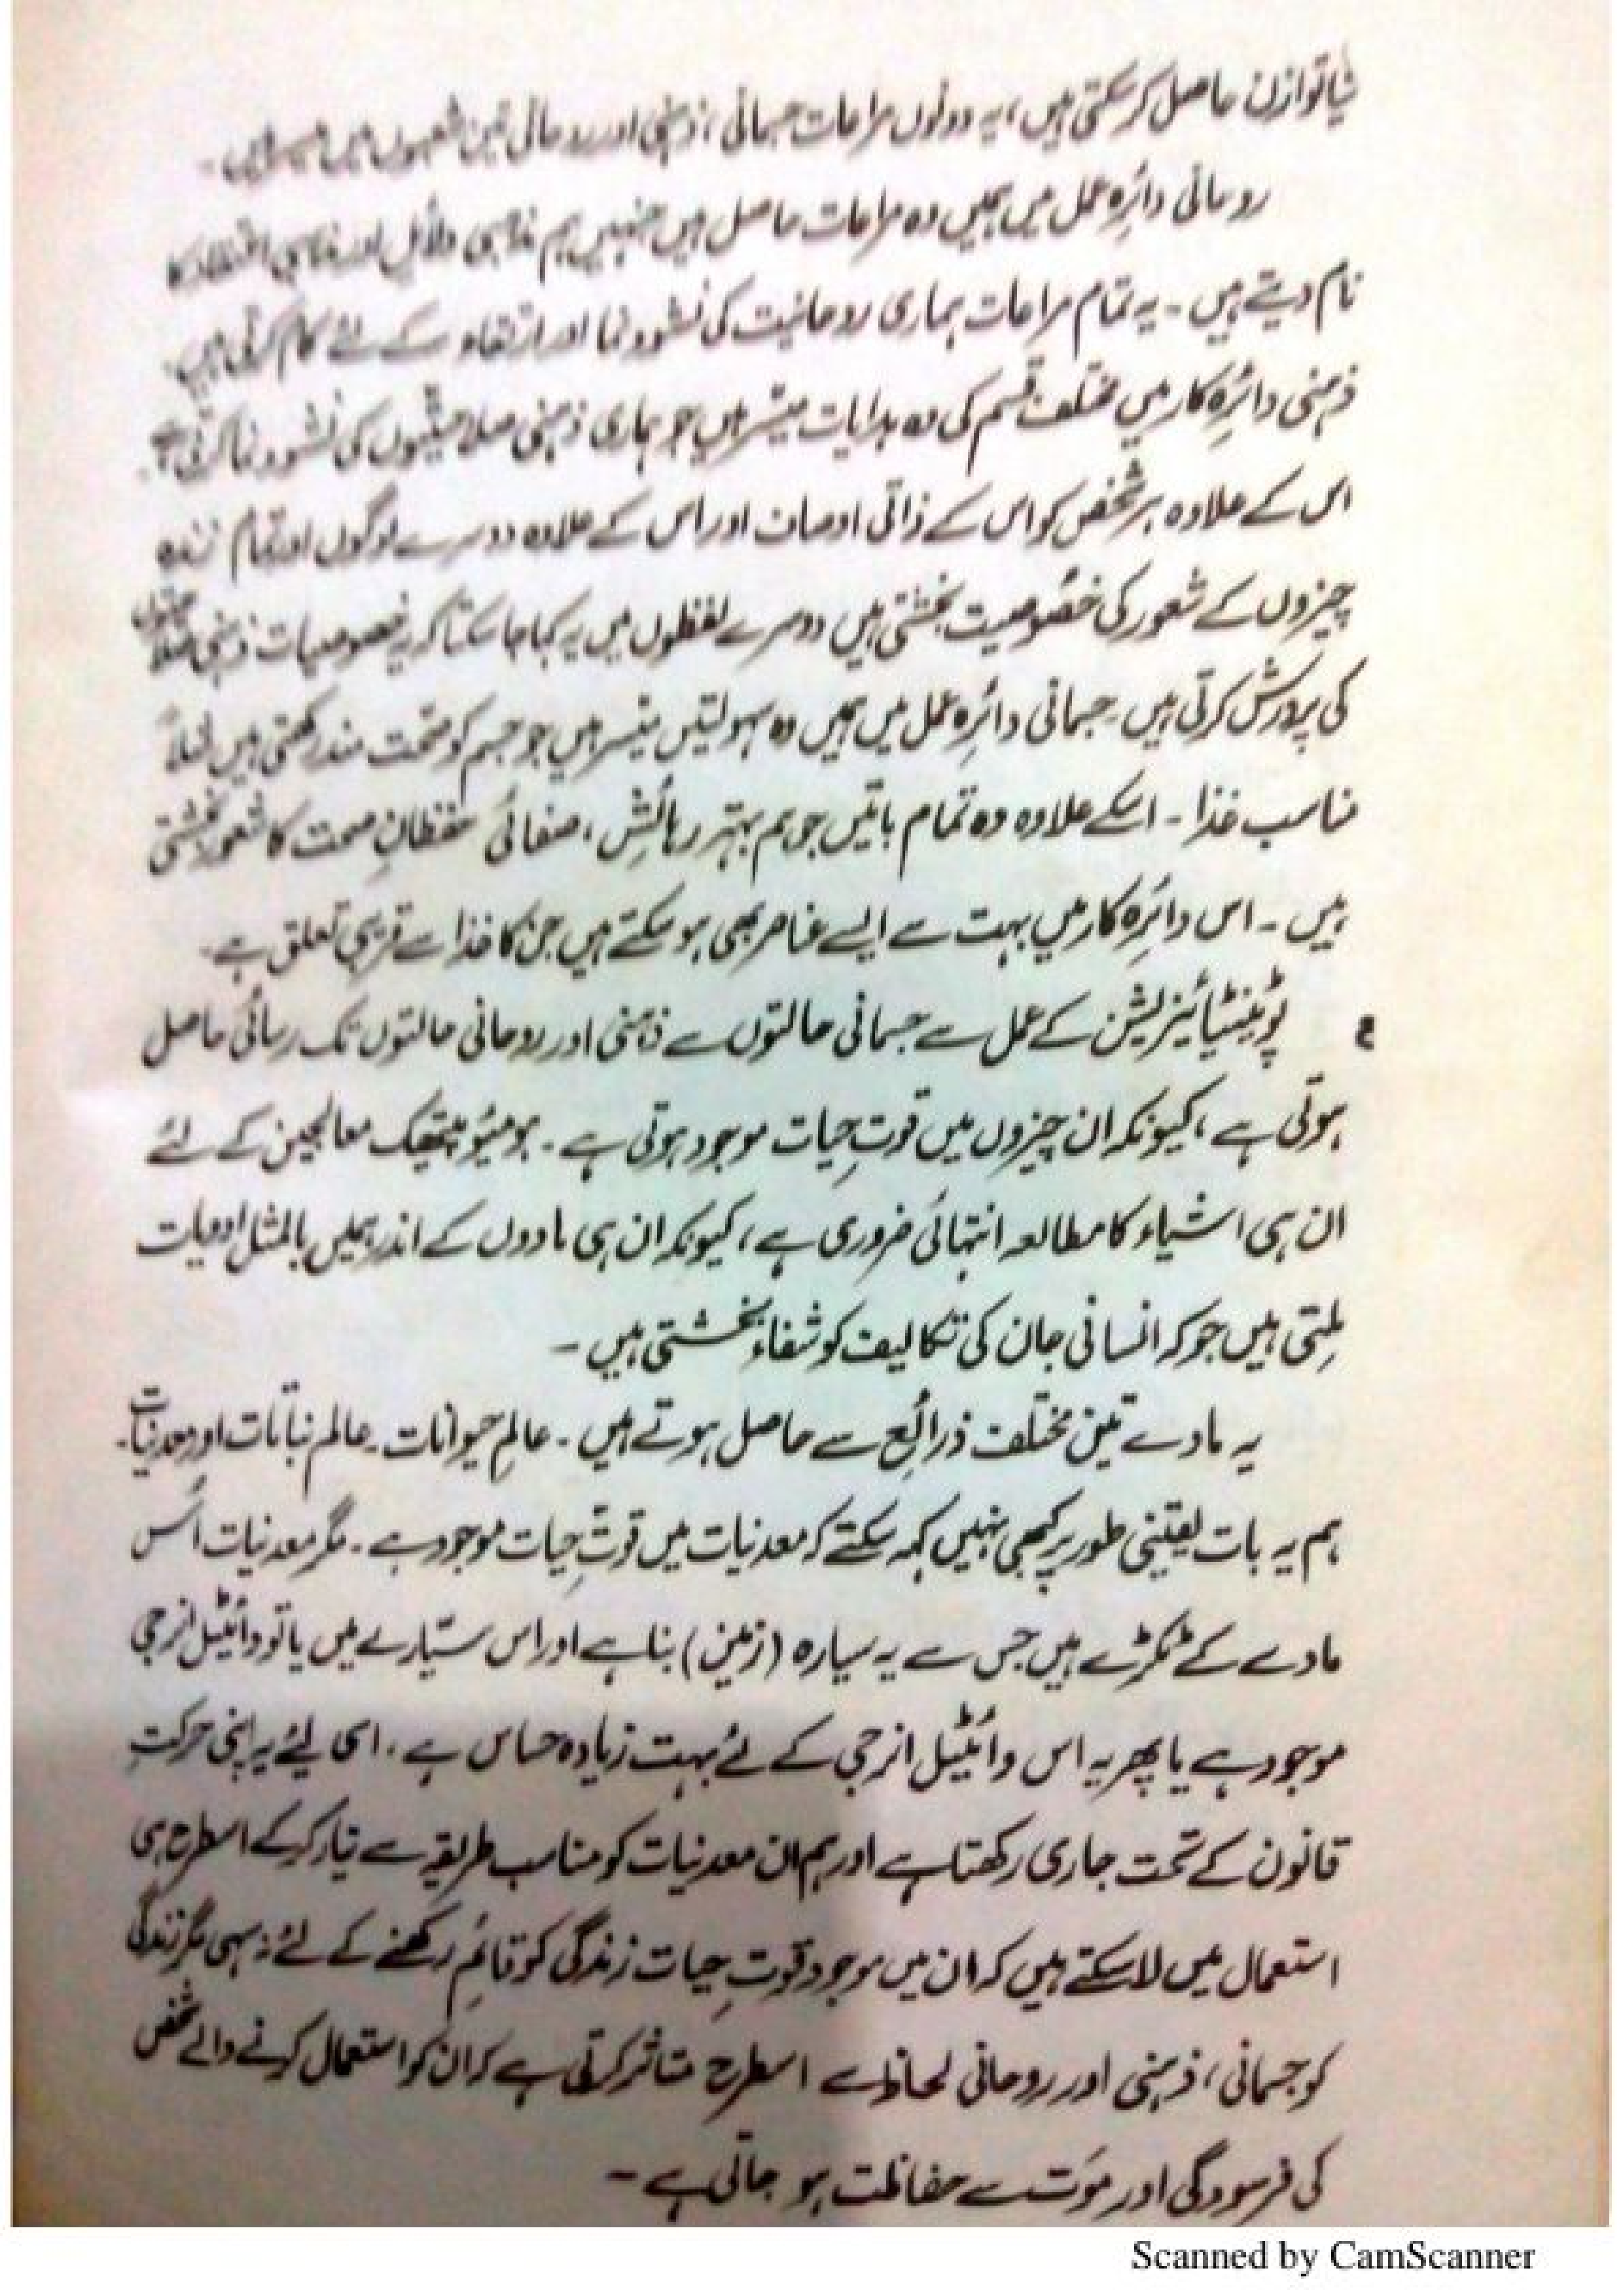 نیا توازن حاصل کر سکتی ہیں، یہ دونوں مراعات جسمانی، ذہنی اور روحانی تین شعبوں میں میسر ہیں۔
روحانی دائرہ عمل میں ہمیں وہ مراعات حاصل ہیں جنہیں ہم مذہبی دلائل اور مذہبی کا
نام دیتے ہیں۔ یہ تمام مراعات ہماری روحانیت کی نشوونما اور ارتقاء کے لئے کام کرتی ہیں۔
ذہنی دائرہ کار میں مختلف قسم کی وہ ہدایات میسر ہیں جو ہماری ذہنی صلاحیتوں کی نشوونما کرتی
اس کے علاوہ ہر شخص کو اس کے ذاتی اوصاف اور اس کے علاوہ دوسرے لوگوں اور تمام زندہ
چیزوں کے شعور کی خصوصیت بخشتی ہیں دوسرے لفظوں میں یہ کہا جا سکتا کہ یہ خصوصیات ذہنی صلاحیتوں
کی پرورش کرتی ہیں۔ جسمانی دائرہ عمل میں ہمیں وہ سہولتیں میسر ہیں جو جسم کو صحت مند رکھتی ہیں مثلاً
مناسب غذا۔ اسکے علاوہ وہ تمام باتیں جو ہم بہتر رہائش، صفائی حفظانِ صحت کا شعور بخشتی
ہیں۔ اس دائرہ کار میں بہت سے ایسے عناصر بھی ہو سکتے ہیں جن کا غذا سے قریبی تعلق ہے۔
پوٹینٹیائیزیشن کے عمل سے جسمانی حالتوں سے ذہنی اور روحانی حالتوں تک رسائی حاصل
ہوتی ہے، کیونکہ ان چیزوں میں قوتِ حیات موجود ہوتی ہے۔ ہومیوپیتھک معالجین کے لئے
ان ہی اشیاء کا مطالعہ انتہائی ضروری ہے، کیونکہ ان ہی مادوں کے اندر ہمیں بالمثل ادویات
ملتی ہیں جو کہ انسانی جان کی تکالیف کو شفاء بخشتی ہیں۔
یہ مادے تین مختلف ذرائع سے حاصل ہوتے ہیں۔ عالمِ حیوانات۔ عالم نباتات اور معدنیات۔
ہم یہ بات یقینی طور پر کبھی نہیں کہہ سکتے کہ معدنیات میں قوتِ حیات موجود ہے۔ مگر معدنیات اُس
مادے کے ٹکڑے ہیں جس سے یہ سیارہ (زمین) بنا ہے اور اس سیّارے میں یا تو وائیٹل انرجی
موجود ہے یا پھر یہ اس وائیٹیل انرجی کے لئے بہت زیادہ حساس ہے۔ اسی لیئے یہ اپنی حرکت
قانون کے تحت جاری رکھتا ہے اور ہم ان معدنیات کو مناسب طریقے سے تیار کر کے اسطرح ہی
استعمال میں لا سکتے ہیں کہ ان میں موجود قوتِ حیات زندگی کو قائم رکھنے کے لئے نہ سہی مگر زندگی
کو جسمانی، ذہنی اور روحانی لحاظ سے اسطرح متاثر کرتی ہے کہ ان کو استعمال کرنے والے شخص
کی فرسودگی اور موَت سے حفاظت ہو جاتی ہے۔
Scanned by CamScanner